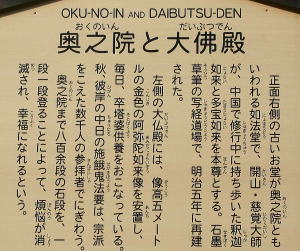 OKU-NO-IN AND DAIBUTSU-DEN
おくのいん だいぶつでん
奥之院と大佛殿
正面右側の古いお堂が奥之院とも
いわれる如法堂で、開山・慈覚大師
が、中国で修行中に持ち歩いた釈迦
如来と多宝如来を本尊とする。石墨
草筆の写経道場で、明治五年に再建
された。
左側の大仏殿には、像高五メート
ルの金色の阿弥陀如来像を安置し、
毎日、卒塔婆供養をおこなっている。
秋、彼岸の中日の施餓鬼法要は、宗派
をこえた数千人の参拝者でにぎわう。
奥之院まで八百余段の石段を、一
段一段登ることによって、煩悩が消
滅され、幸福になれるという。